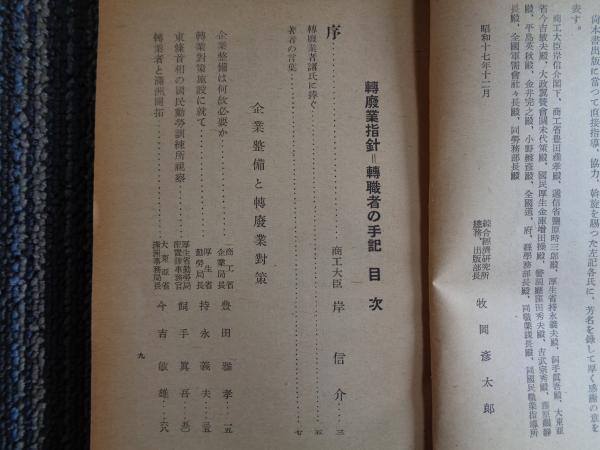 尚本書出版に當つて直接指導、協力、斡旋を賜つた左記各氏に、芳名を錄して厚く感謝の意を
表す。
商工大臣岸信介閣下、商工省豊田雅孝殿、遞信省鹽原時三郎殿、厚生省持永義夫殿、飼手眞吾殿、大東亞
省今吉敏夫殿、大政翼賛會國末代策殿、國民厚生金庫增田操殿、警視廳窪田秀夫殿、吉武宗秀殿、藤原
殿、平島英秋殿、金井完之殿、小野磐彥殿、全國道、府、縣學務部長殿、同職業課長殿、同國民職業指導所
長殿、全國軍需會社々長殿、同勞務部長殿
昭和十七年十二月
綜合經濟研究所
總務、出版部長
牧岡彥太郎
轉廢業指針=轉職者の手記 目次
序……商工大臣 岸信介……三
轉廢業者諸氏に捧ぐ……五
著者の言葉……七
企業整備と轉廢業對策
企業整備は何故必要か……商工省企業局長 豊田雅孝……一五
轉業對策施設に就て……厚生省勤勞局長 持永義夫……三五
東條首相の國民勤勞訓練所視察……厚生省勤勞局 飼手眞吾……五〇
轉業者と滿洲開拓……大東亞省滿洲事務局長 今吉敏雄……六八
九